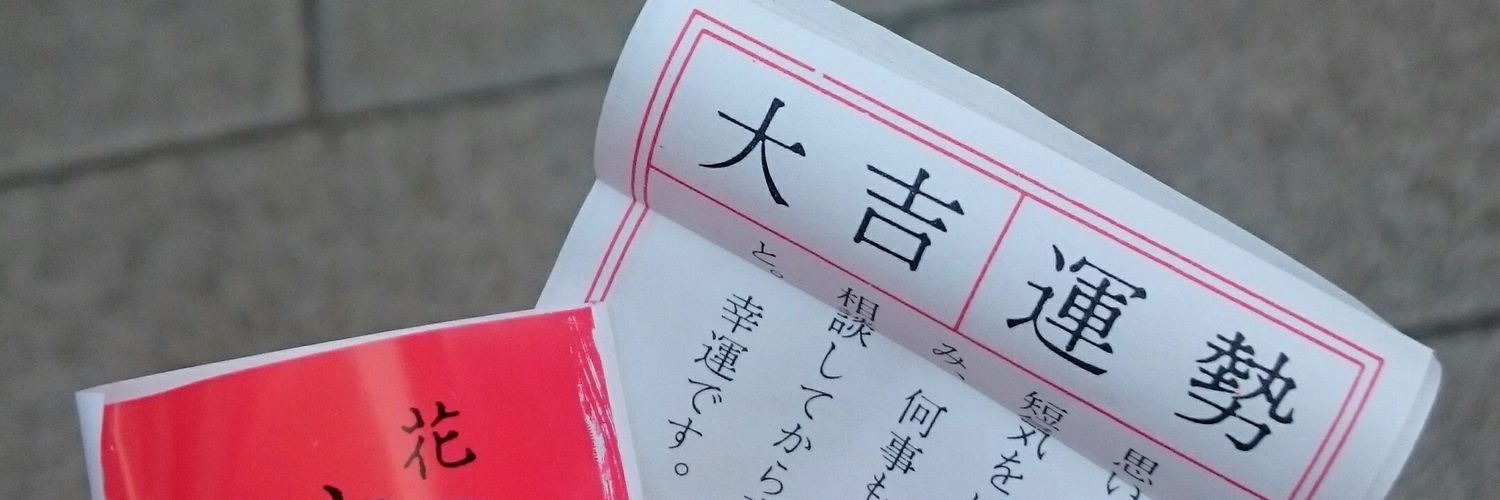 大吉 運勢
思い
短気を
み、何事も
相談してから
と。幸運です。
花